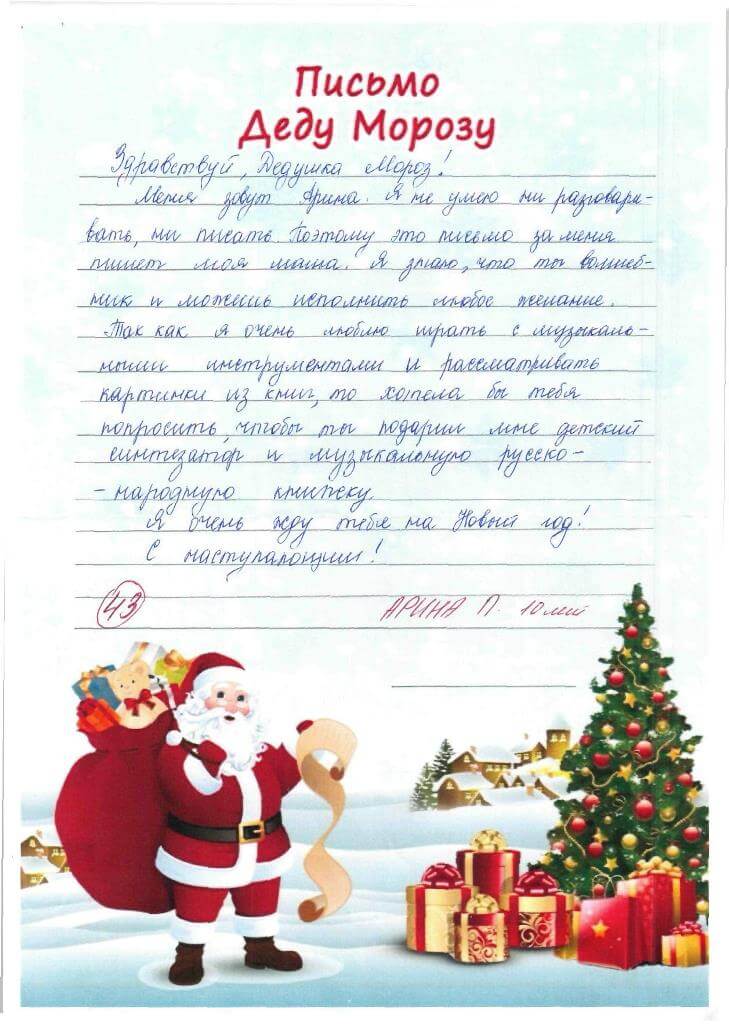 Письмо
Деду Морозу
Здравствуй, Дедушка Мороз!
Меня зовут Арина. Я не умею ни разговари-
вать, ни писать. Поэтому это письмо за меня
пишет моя мама. Я знаю, что ты волшеб-
ник и можешь исполнить любое желание.
Так как я очень люблю играть с музыкаль-
ными инструментами и рассматривать
картинки из книг, то хотела бы тебя
попросить, чтобы ты подарил мне детский
синтезатор и музыкальную русско-
-народную книжку.
Я очень жду тебя на Новый год!
С наступающим!
43
АРИНА П. 10 лет